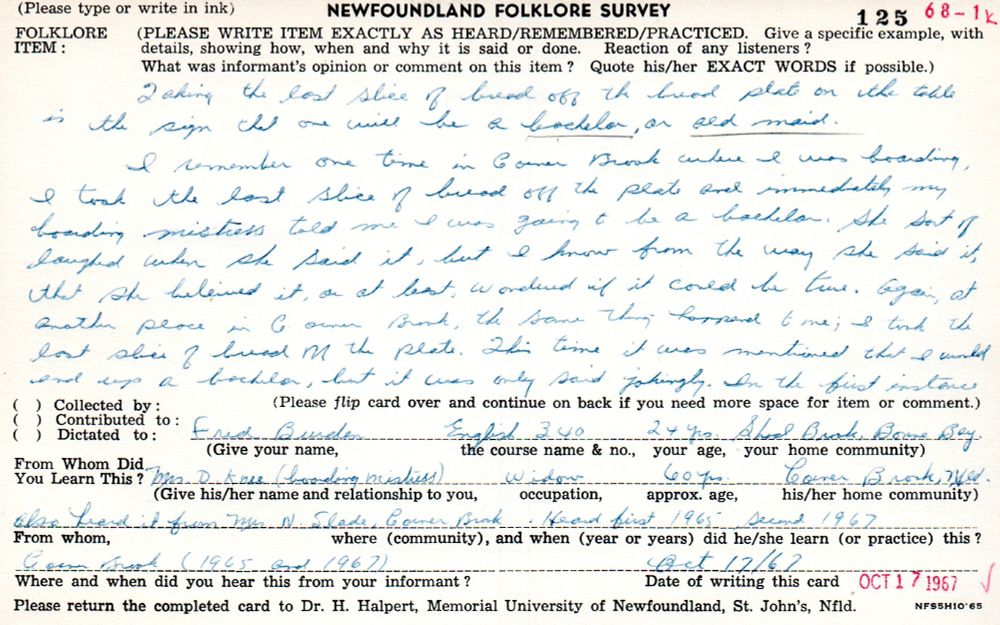 (Please type or write in ink) NEWFOUNDLAND FOLKLORE SURVEY 125 68-1k
FOLKLORE ITEM : (PLEASE WRITE ITEM EXACTLY AS HEARD/REMEMBERED/PRACTICED. Give a specific example, with
details, showing how, when and why it is said or done. Reaction of any listeners ?
What was informant's opinion or comment on this item ? Quote his/her EXACT WORDS if possible.)
Taking the last slice of bread off the bread plate on the table
is the sign that one will be a bachelor, or old maid.
I remember one time in Corner Brook where I was boarding,
I took the last slice of bread off the plate and immediately my
boarding mistress told me I was going to be a bachelor. She sort of
laughed when she said it, but I know from the way she said it,
that she beleived it, or at least, wondered if it could be true. Again, at
another place in Corner Brook, the same thing happend to me; I took the
last slice of bread off the plate. This time it was mentioned that I would
end up a bachelor, but it was only said jokingly. In the first instance
( ) Collected by : (Please flip card over and continue on back if you need more space for item or comment.)
( ) Contributed to :
( ) Dictated to : Fred Burden English 340 24 yrs. Shoal Brook, Bonne Bay.
(Give your name, the course name & no., your age, your home community)
From Whom Did
You Learn This ? Mrs D. Knee (boarding mistress) Widow 60 yrs. Corner Brook, Nfld.
(Give his/her name and relationship to you, occupation, approx. age, his/her home community)
also heard it from Mrs N. Slade, Corner Brook. Heard first 1965 second 1967
From whom, where (community), and when (year or years) did he/she learn (or practice) this ?
Corner Brook (1965 and 1967) Oct 17/67
Where and when did you hear this from your informant ? Date of writing this card OCT 17 1967 √
Please return the completed card to Dr. H. Halpert, Memorial University of Newfoundland, St. John's, Nfld. NFS5H10'65